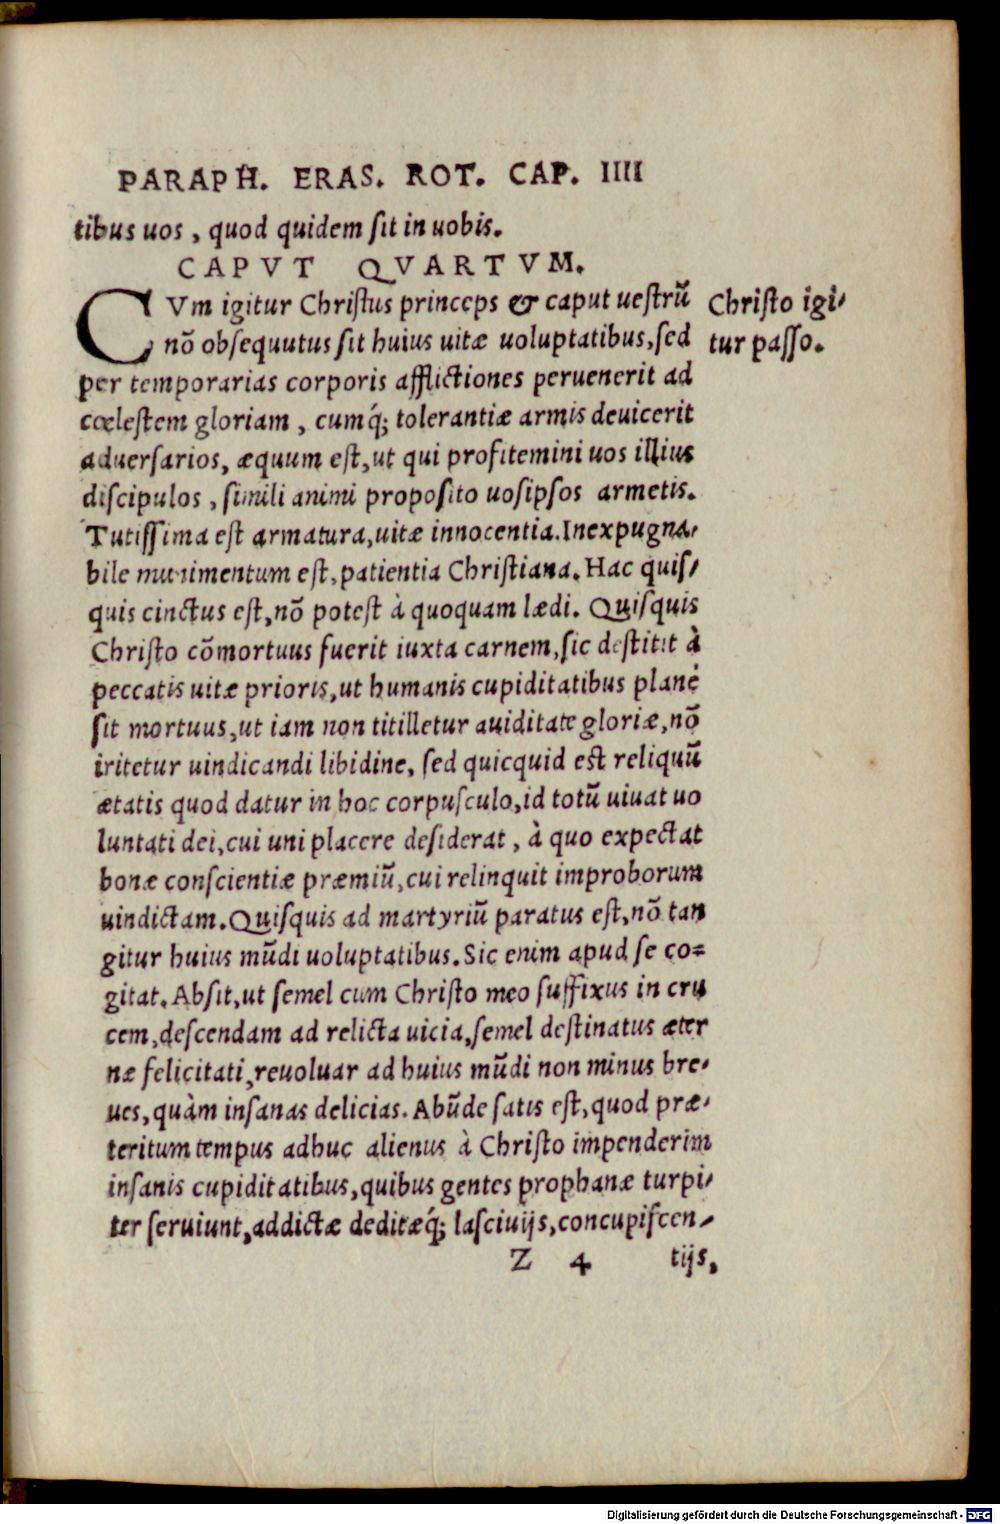 PARAPH. ERAS. ROT. CAP. IIII
tibus uos, quod quidem sit in uobis.
CAPVT QVARTVM.
CVm igitur Christus princeps & caput uestrũ
nõ obsequutus sit huius uitæ uoluptatibus, sed
per temporarias corporis afflictiones peruenerit ad
cœlestem gloriam, cumq́; tolerantiæ armis deuicerit
aduersarios, æquum est, ut qui profitemini uos illius
discipulos, simili animi proposito uosipsos armetis.
Tutissima est armatura, uitæ innocentia. Inexpugna-
bile munimentum est, patientia Christiana. Hac quis-
quis cinctus est, nõ potest à quoquam lædi. Quisquis
Christo cõmortuus fuerit iuxta carnem, sic destitit à
peccatis uitæ prioris, ut humanis cupiditatibus planè
sit mortuus, ut iam non titilletur auiditate gloriæ, nõ
iritetur uindicandi libidine, sed quicquid est reliquũ
ætatis quod datur in hoc corpusculo, id totũ uiuat uo
luntati dei, cui uni placere desiderat, à quo expectat
bonæ conscientiæ præmiũ, cui relinquit improborum
uindictam. Quisquis ad martyriũ paratus est, nõ tan
gitur huius mũdi uoluptatibus. Sic enim apud se co-
gitat. Absit, ut semel cum Christo meo suffixus in cru
cem, descendam ad relicta uicia, semel destinatus æter
næ felicitati, reuoluar ad huius mũdi non minus bre-
ues, quàm insanas delicias. Abũde satis est, quod præ-
teritum tempus adhuc alienus à Christo impenderim
insanis cupiditatibus, quibus gentes prophanæ turpi-
ter seruiunt, addictæ deditæq́; lasciuijs, concupiscen-
Z 4 tijs,
Christo igi-
tur passo.
Digitalisierung gefördert durch die Deutsche Forschungsgemeinschaft - DFG